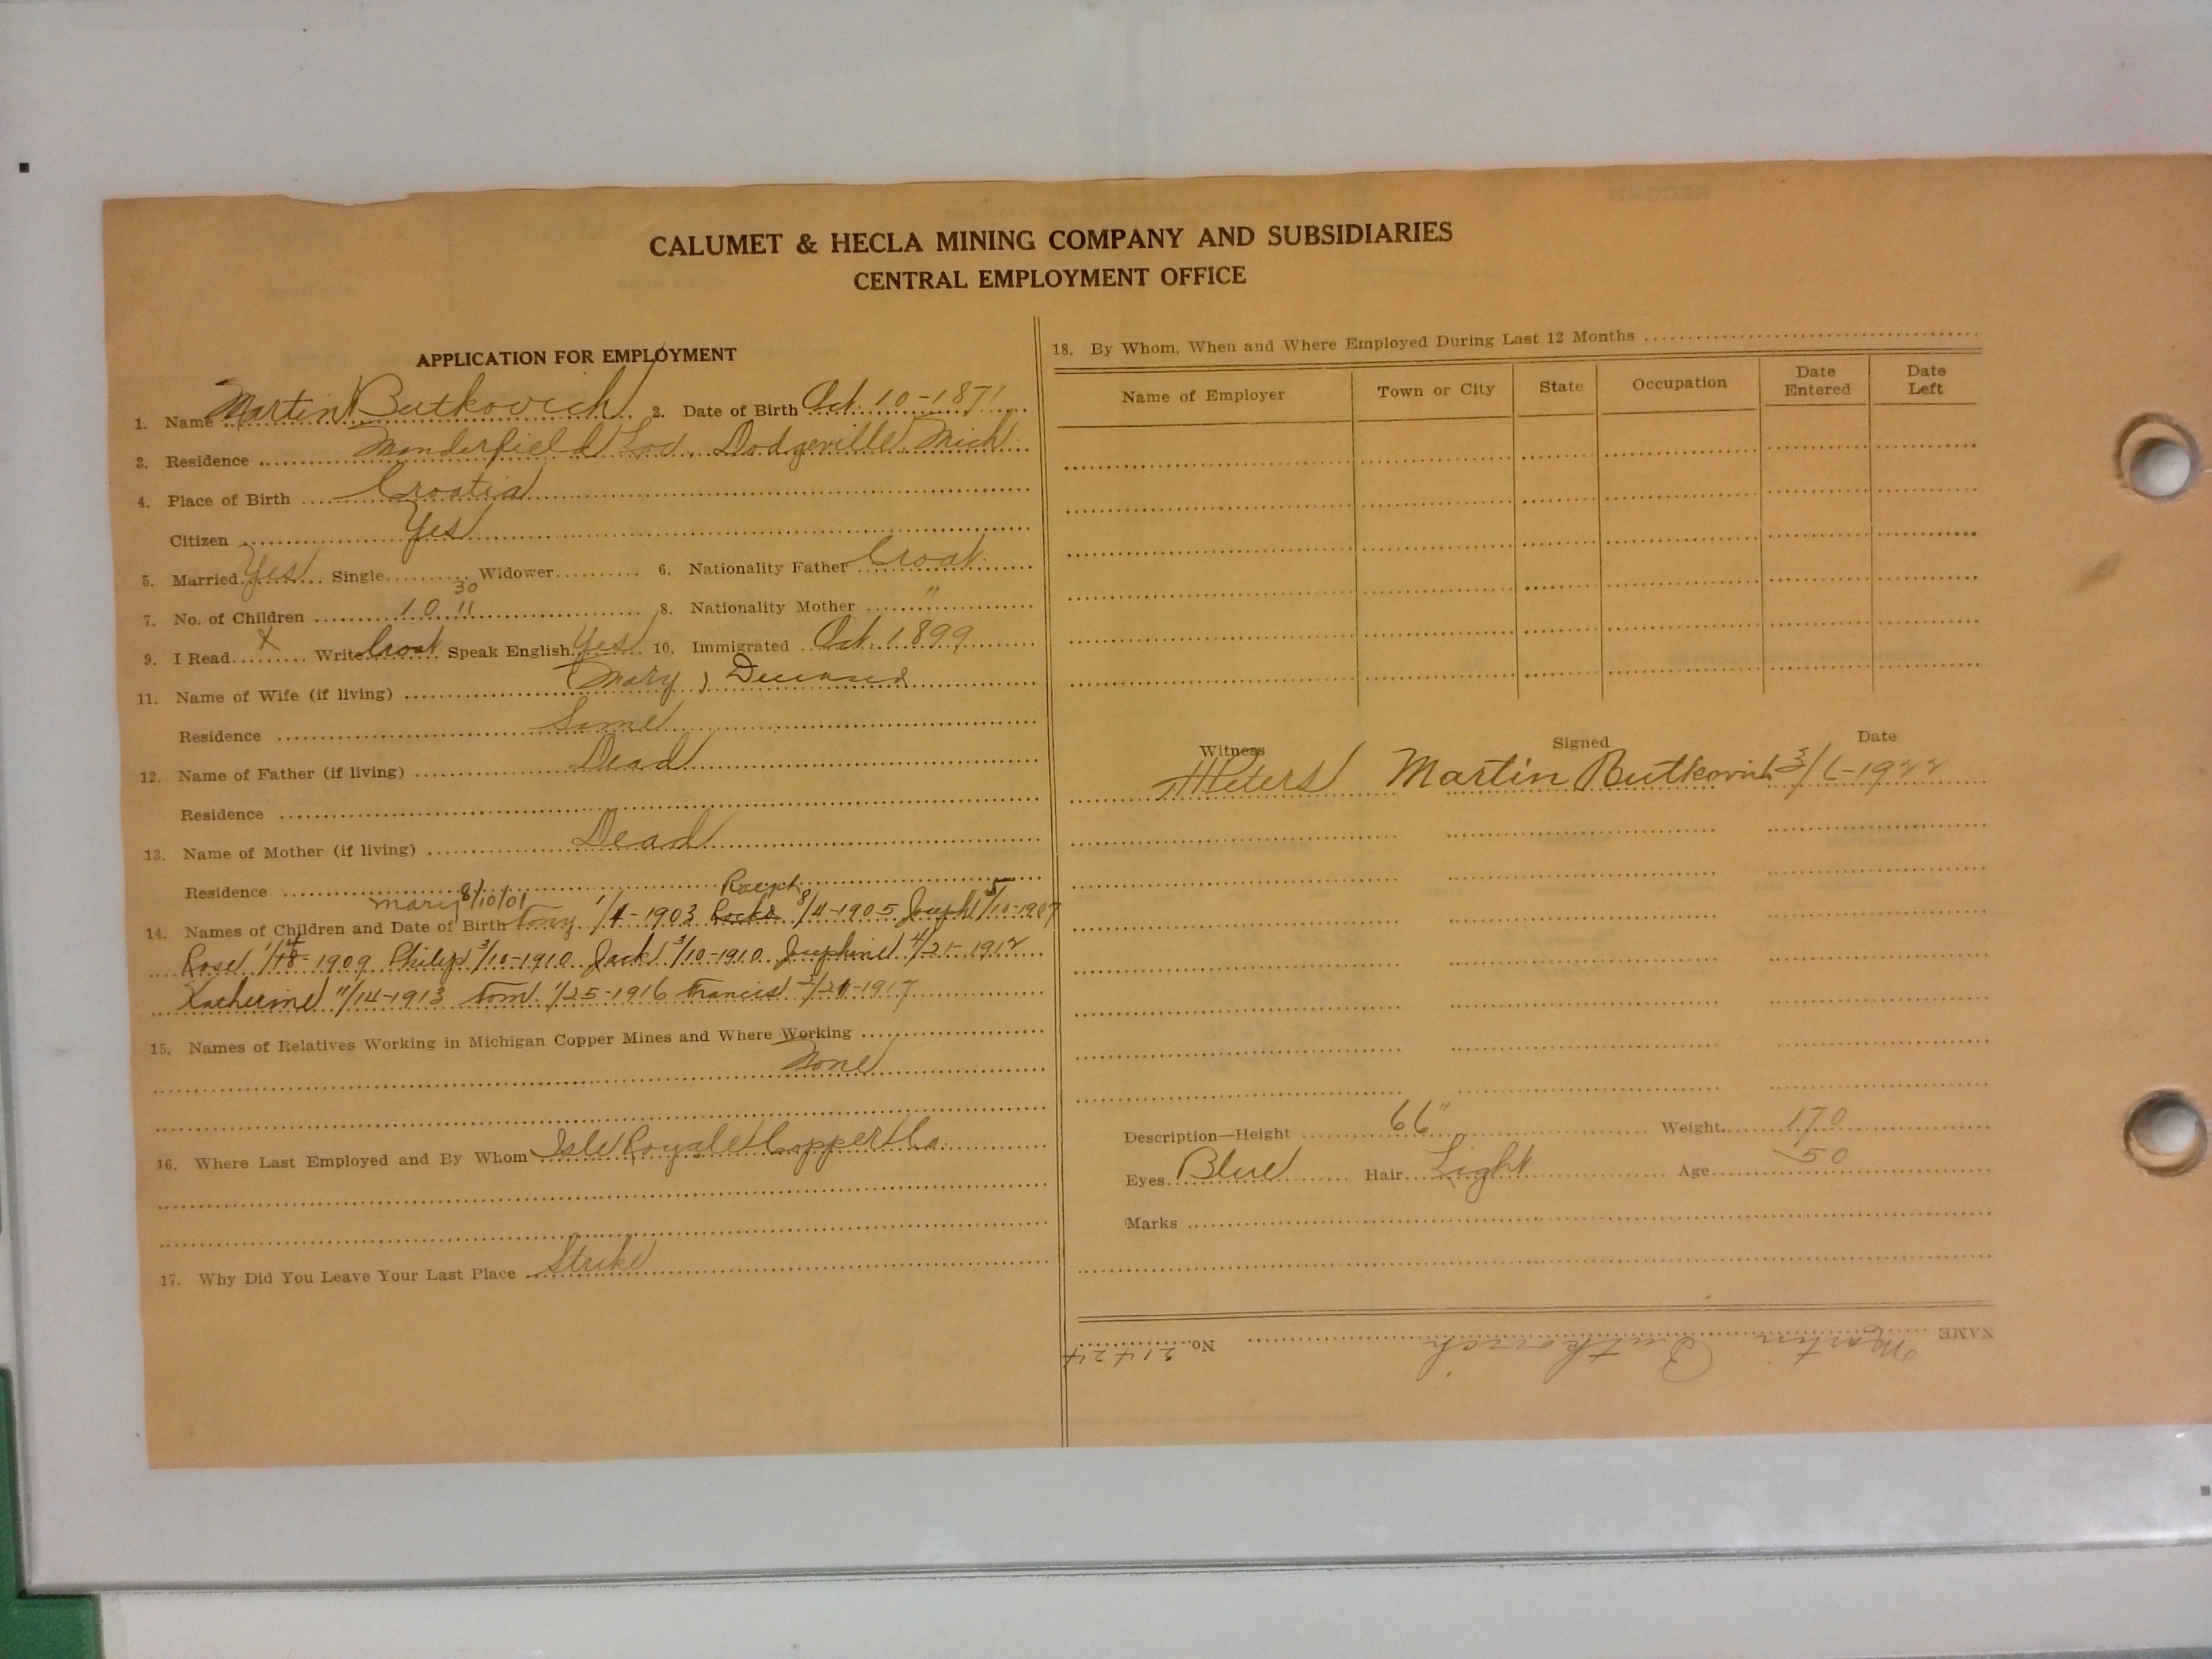 CALUMET & HECLA MINING COMPANY AND SUBSIDIARIES
CENTRAL EMPLOYMENT OFFICE
APPLICATION FOR EMPLOYMENT
1. Name Martin Butkovich 2. Date of Birth Oct. 10-1871
3. Residence Dodgeville Mich
4. Place of Birth Croatia
Citizen Yes
5. Married Yes Single Widower 6. Nationality Father Croat.
30
7. No. of Children 10 11 8. Nationality Mother "
9. I Read X Write Croat Speak English Yes 10. Immigrated Oct. 1899
11. Name of Wife (if living) (Mary) Deceased
Residence Same
12. Name of Father (if living) Dead
Residence
13. Name of Mother (if living) Dead
Residence
Mary 8/10/01 Ralph
14. Names of Children and Date of Birth Tony 1/4-1903 8/4-1905 Joseph 5/10-1907
Rose 1909 Philip 3/10-1910 Jack 3/10-1910 Josephine 4/21-1912
Katherine 11/14-1913 Tom 1/25-1916 Francis 1917
15. Names of Relatives Working in Michigan Copper Mines and Where Working
None
16. Where Last Employed and By Whom Isle Royale Copper Co.
17. Why Did You Leave Your Last Place Strike
18. By Whom, When and Where Employed During Last 12 Months
Name of Employer Town or City State Occupation Date Entered Date Left
Witness Signed Date
Peters Martin Butkovich 3/6-1922
Description—Height 66" Weight 170
Eyes Blue Hair Light Age 50
Marks
NAME Martin Butkovich No. 21424